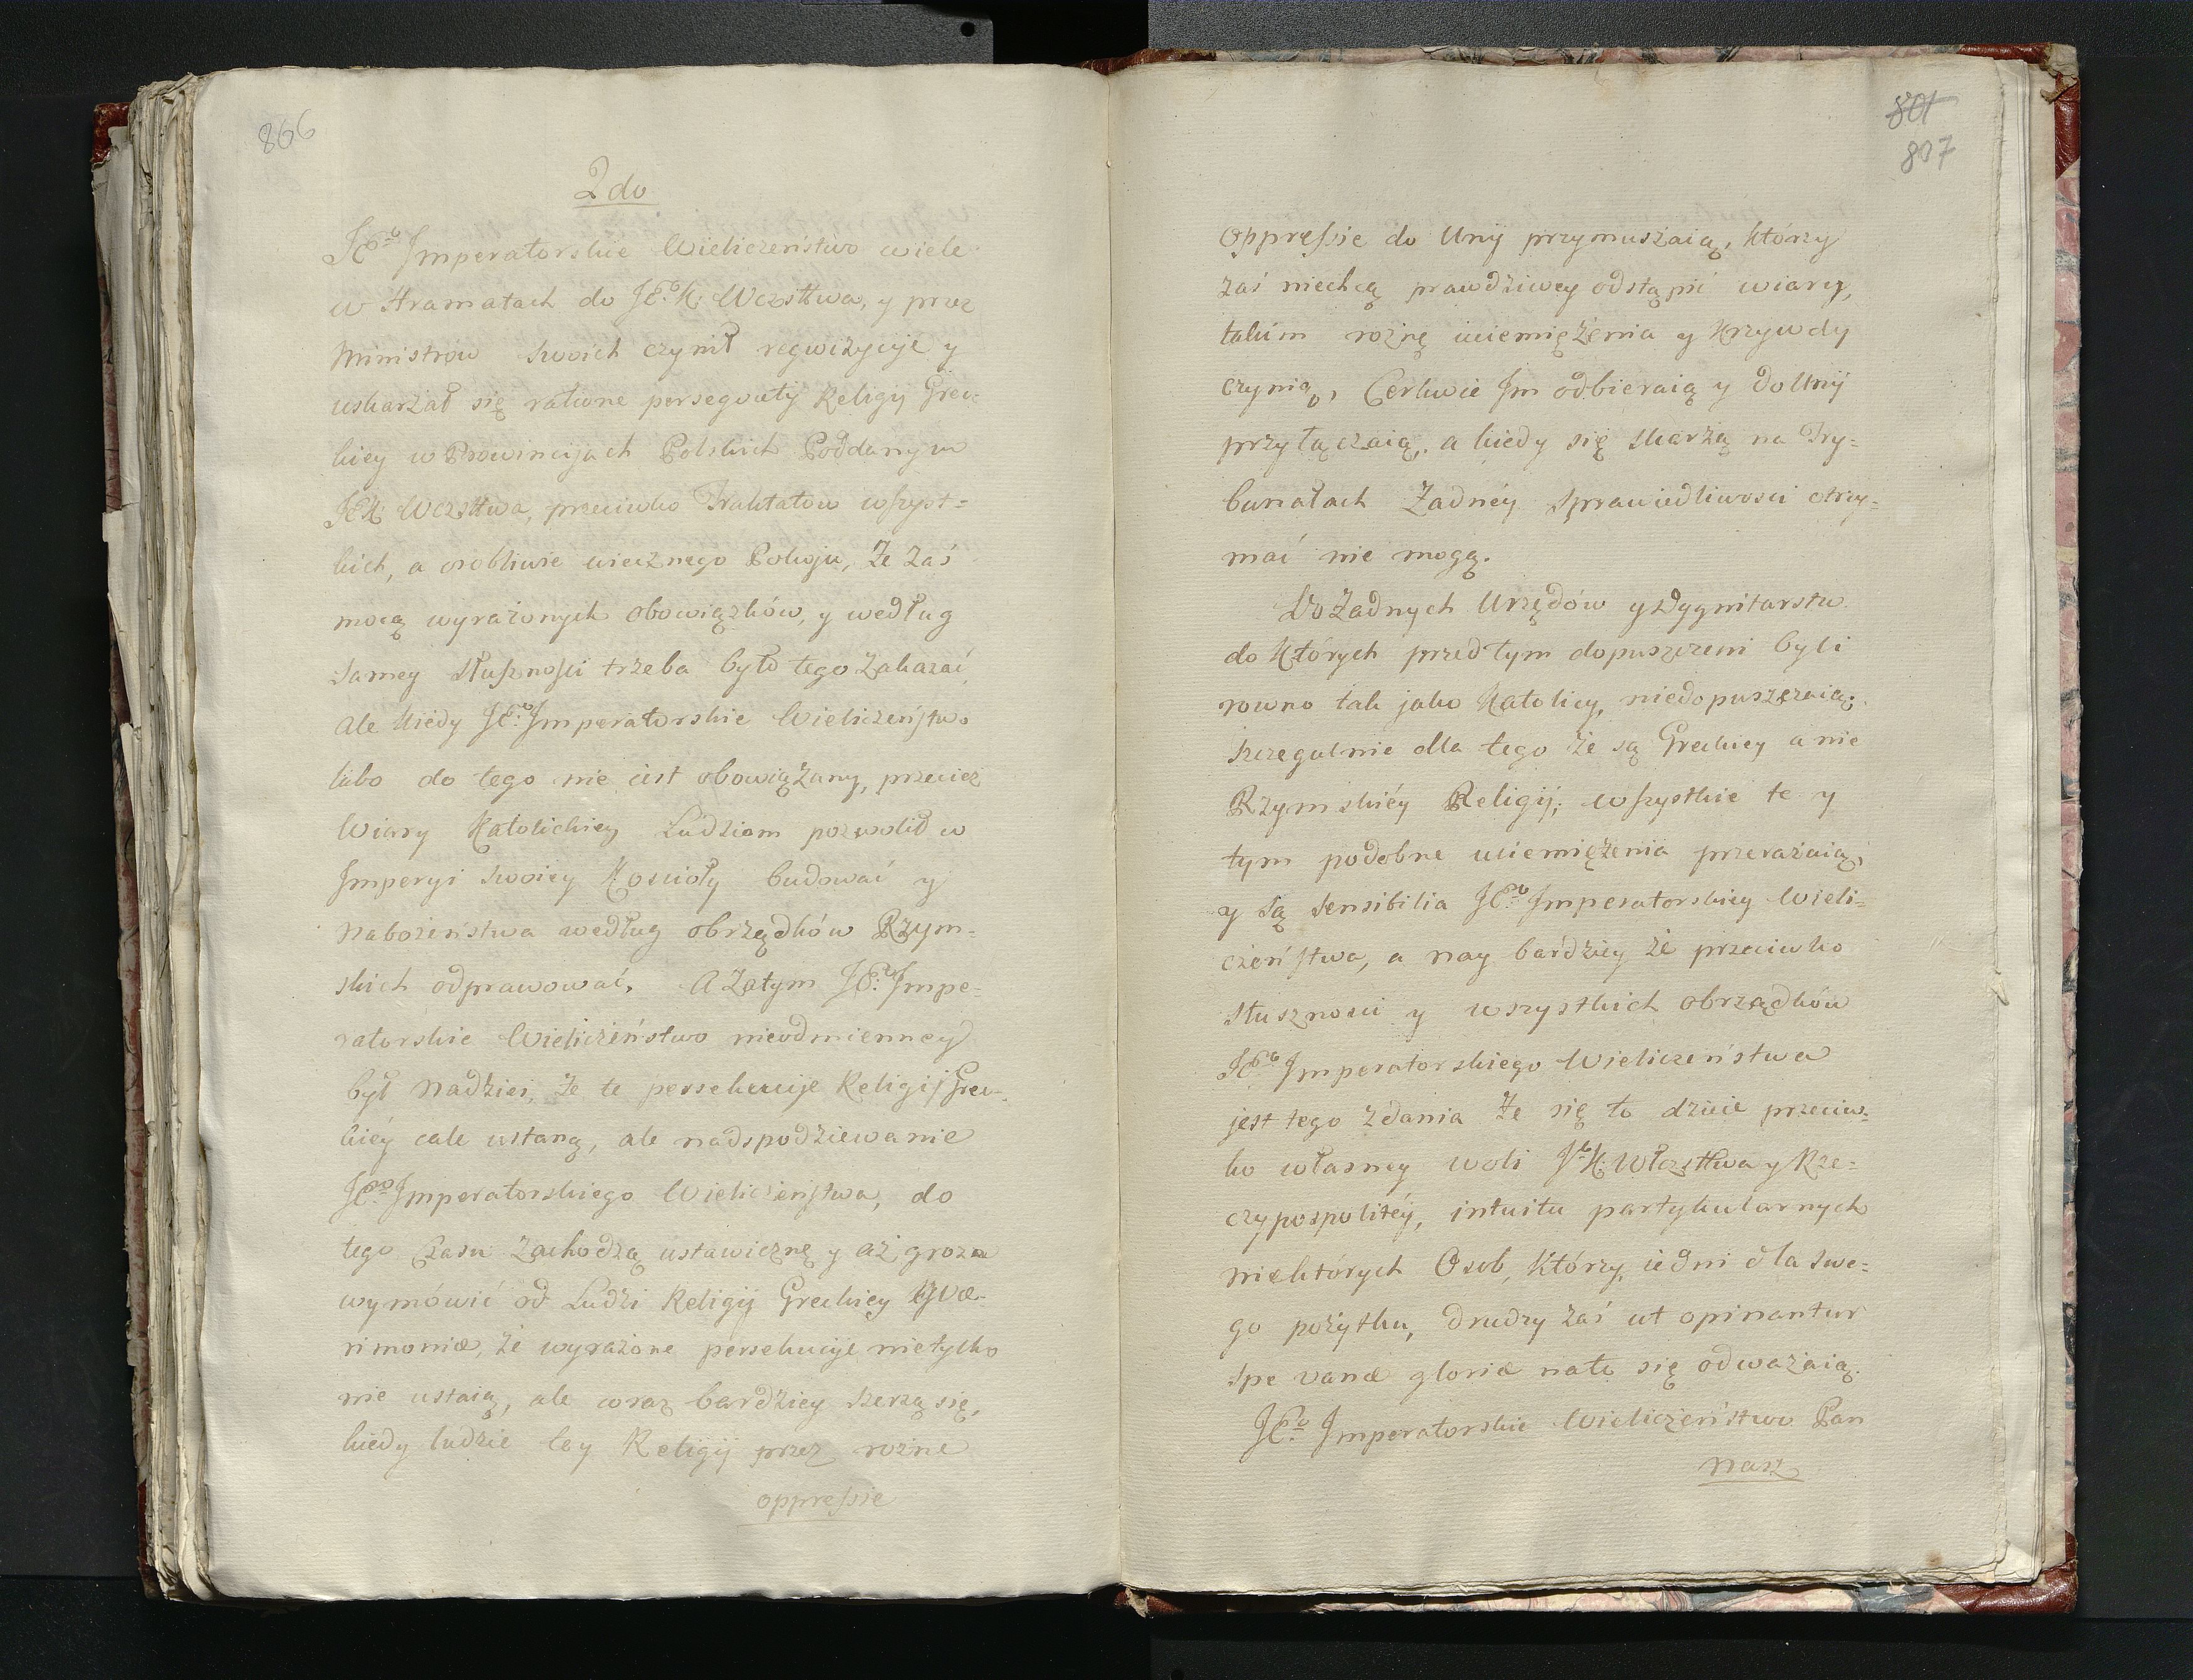 866
2do
JEo Imperatorskie Wieliczenstwo wiele
w Hramatach do JEo K: Wczsttwa, y przez
Ministrow swoich czynił regwizycije y
uskarżał się ratione perseqvuty Religij Grec-
kiey w Prowincijach Polskich Poddanym
JEK Wczsttwa, przeciwko Traktatow wszyst=
kich, a osobliwie wiecznego Pokoju, Że zaś
mocą wyrażonych obowiązków, y według
samey słuszności trzeba było tego zakazać,
ale kiedy JEo Imperatorskie Wieliczeństwo
lubo do tego nie iest obowiązany, przecież
Wiary Katolickiey Ludziom pozwolił w
Imperyi swoiey Kościoły budować y
nabożeństwa według obrządków Rzym=
skich odprawować. A zatym JEo Impe=
ratorskie Wieliczeństwo nieodmienney
był nadziei, że te persekucije Religij Grec-
kiéy cale ustaną, ale nadspodziewanie
JEgo Imperatorskiego Wieliczeństwa, do
tego czasu zachodzą ustawicznę y aż groza
wymówić od Ludzi Religij Greckiey Qvæ-
rimoniæ, że wyrażone persekucije nietylko
nie ustaią, ale coraz bardziey szerzą się,
kiedy ludzie tey Religij przez rożne
oppressie
801
807
Oppressie do Unij przymuszaią, którzy
zaś niechcą prawdziwey odstąpić wiary,
takim rożnę uciemiężenia y Krzywdy
czynią, Cerkwie Im odbieraią y do Unij
przyłączaią, a kiedy się skarżą na Try=
bunałach Żadnéy Sprawiedliwości otrzy=
mać nie mogą.
Do Żadnych Urzędów y Dygnitarstw
do których przedtym dopuszczeni byli
rowno tak jako Katolicy, niedopuszczaią
szczegulnie dla tego że są Greckiey a nie
Rzymskiéy Religij; wszystkie te y
tym podobne uciemiężenia przerażaią,
y są sensibilia JEo Imperatorskiey Wieli=
czeństwa, a nay bardziey że przeciwko
słuszności y wszystkich obrządków
JEo Imperatorskiego Wieliczeństwa
jest tego zdania Że się to dzieie przeciw=
ko własney woli Jo K: Wczsttwa y Rze=
czypospolitéy, intuitu partykularnych
niektórych Osob, którzy, iedni dla swe=
go pożytku, drudzy zaś ut opinantur
spe vanæ gloriæ nato się odważaią.
JEo Imperatorskie Wieliczeństwo Pan
nasz